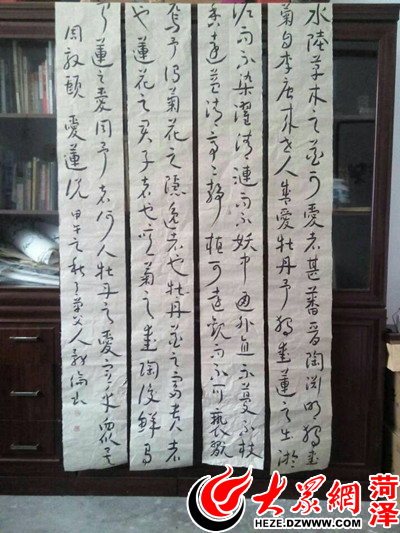 水陸草木之花可愛者甚蕃晋陶渊明獨愛
菊自李唐来世人甚愛牡丹予獨愛蓮之出淤
泥而不染濯清漣而不妖中通外直不蔓不枝
香遠益清亭々静植可遠觀而不可褻翫
焉予謂菊花之隐逸者也牡丹花之富贵者
也蓮花之君子者也噫菊之愛陶後鮮有
闻蓮之愛同予者何人牡丹之愛宜乎眾矣
周敦頤 愛蓮説 甲午之秋
大众网 菏泽
HEZE.DZWWW.COM